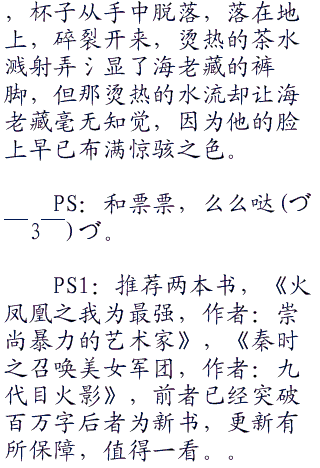 ，杯子从手中脱落，落在地
上，碎裂开来，烫热的茶水
溅射弄氵显了海老藏的裤
脚，但那烫热的水流却让海
老藏毫无知觉，因为他的脸
上早已布满惊骇之色。
PS：和票票，么么哒(づ
￣3￣)づ。
PS1：推荐两本书，《火
凤凰之我为最强，作者：崇
尚暴力的艺术家》，《秦时
之召唤美女军团，作者：九
代目火影》，前者已经突破
百万字后者为新书，更新有
所保障，值得一看。。